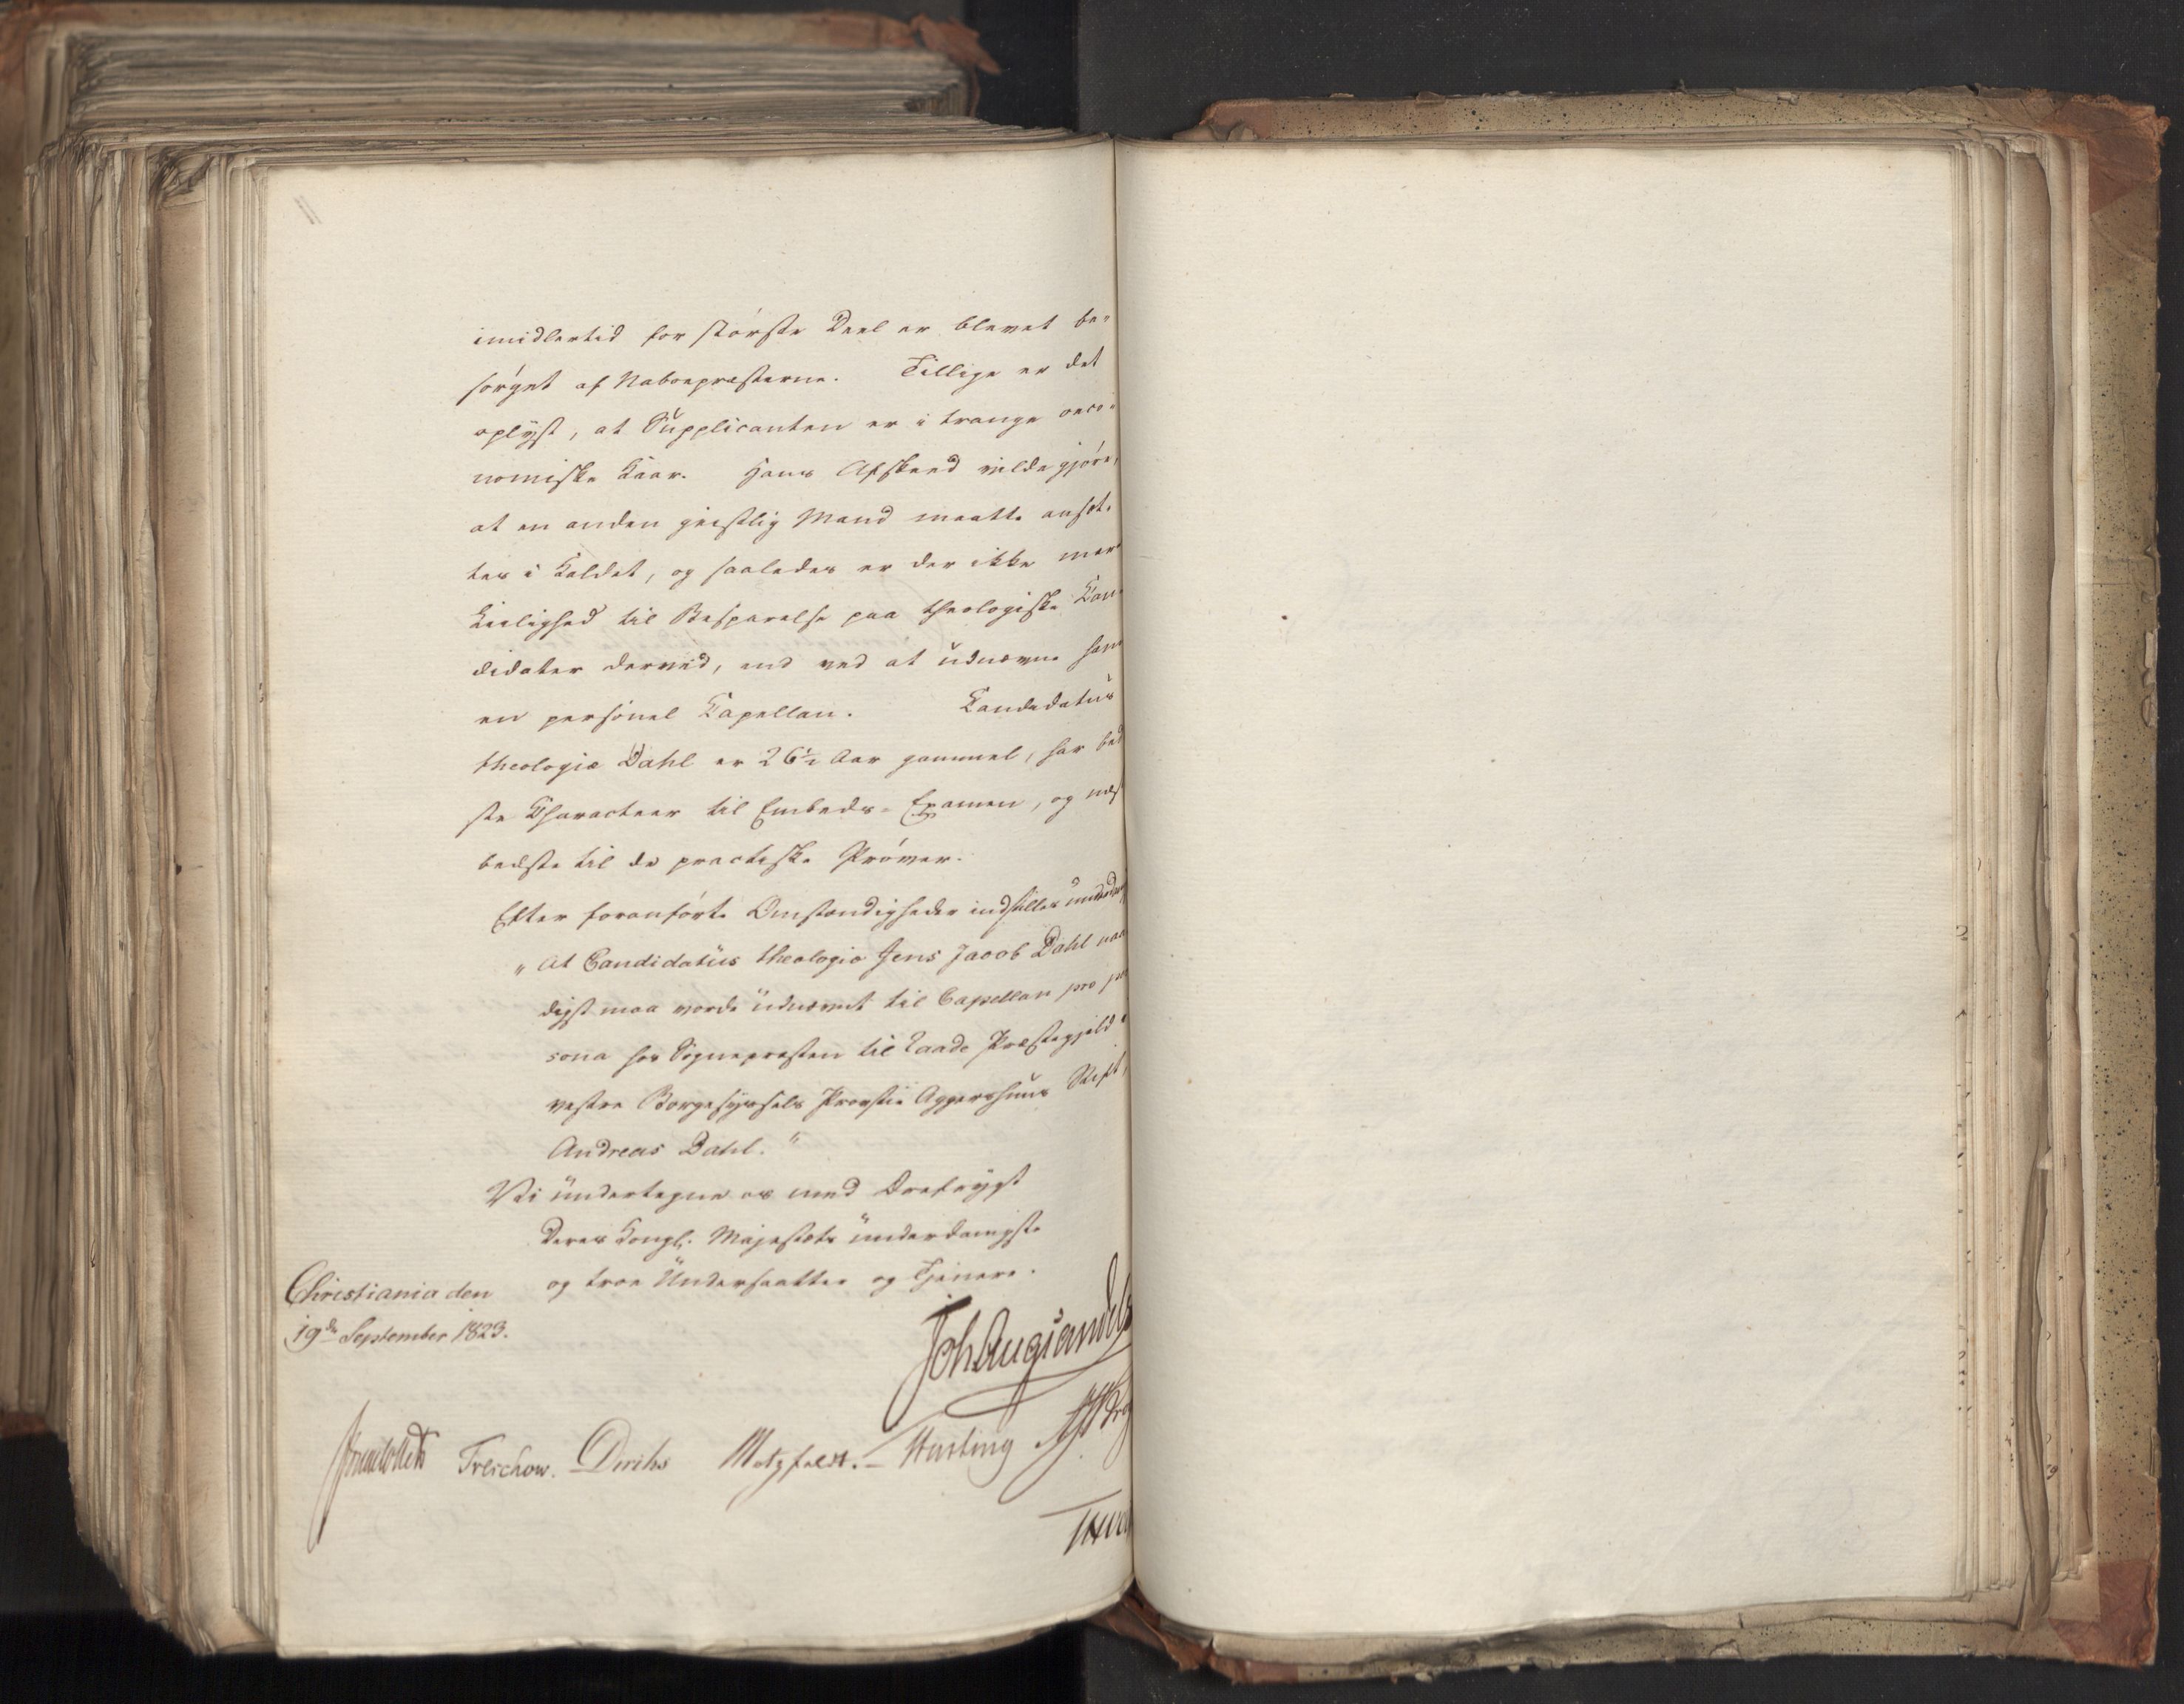 imidlertid for største Deel er blevet be-
sørget af Naboepræsterne. Tillige er det
oplyst, at Supplicanten er i trange oeco-
nomiske Kaar. Hans Afskeed vilde gjøre,
at en anden geistlig Mand maatte ansæt-
tes i Kaldet, og saaledes er der ikke mer
Leilighed til Besparelse paa theologiske Kan-
didater derved, end ved at udnævne ham
en personel Kapellan. Candidatus
theologiæ Dahl er 26½ Aar gammel, har bed
ste Characteer til Embeds-Examen, og næst
bedste til de practiske Prøver.
Efter foranførte Omstændigheder indstilles underdan
"At Candidatus theologiæ Jens Jacob Dahl naa
digst maa vorde udnævnt til Capellan pro per
sona hos Sognepræsten til Raade Præstegjeld i
vestre Borgesyssels Provstie Aggershuus Stift,
Andreas Dahl."
Vi undertegne os med Ærefrygt
Deres Kongl. Majestæts underdanigste
og troe Undersaatter og Tjenere.
Christiania den
19de September 1823.
Joh Aug Sandels
Sommerhielm Treschow. Diriks Motzfeldt. Hasting